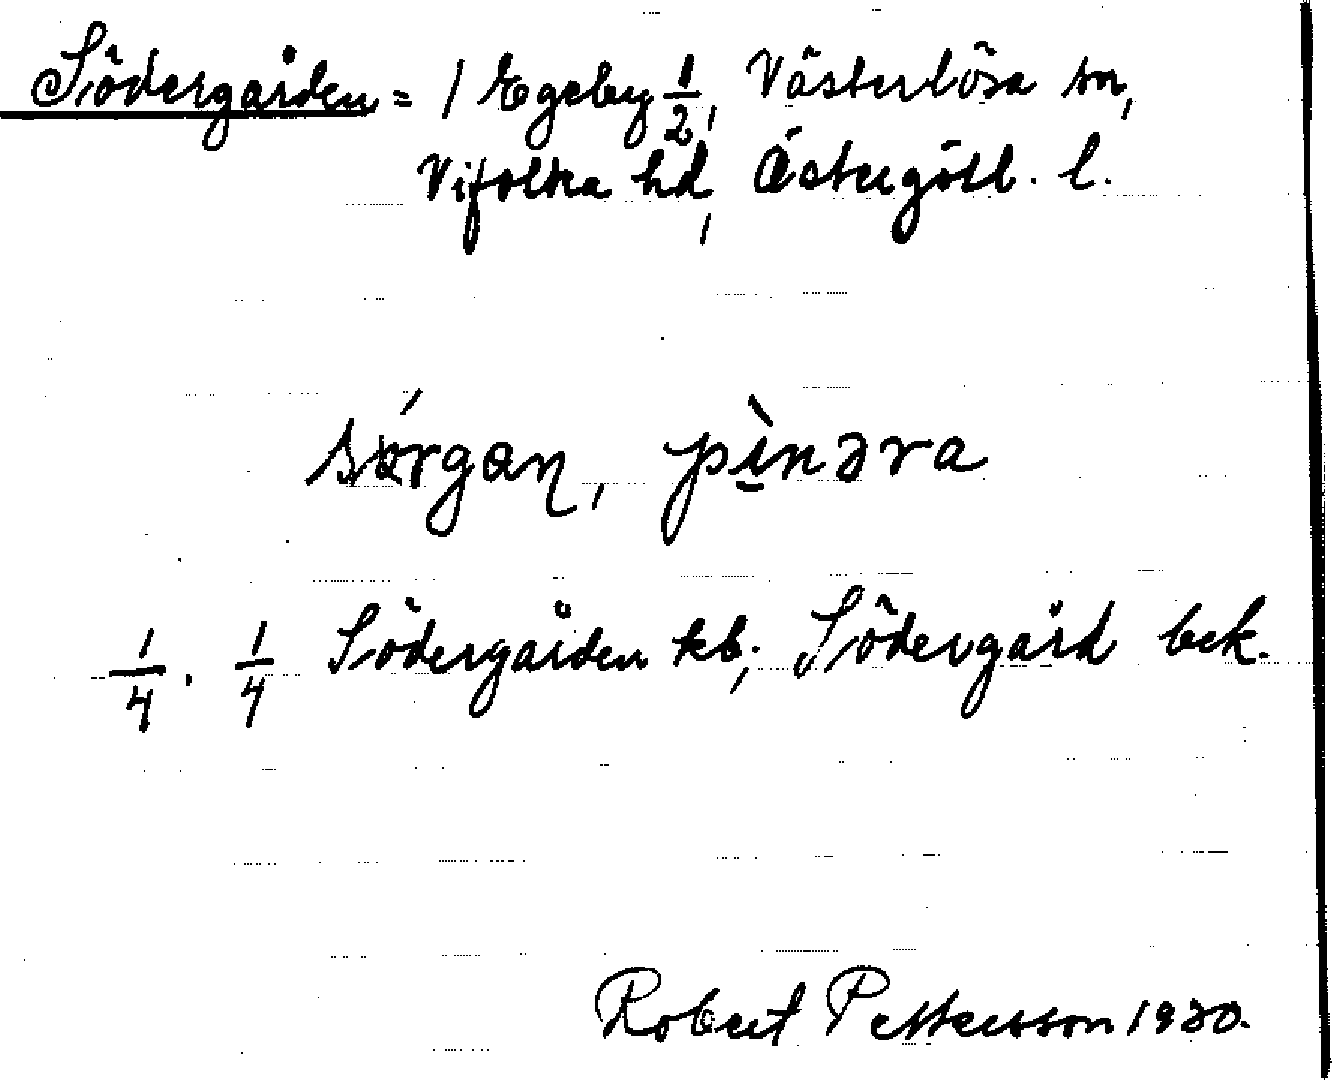 Södergården = 1 Egeby 1/2, Västerlösa sn,
Vifolka hd, Östergötl. l.
sǿrgan, pìnəra
1/4. 1/4 Södergården kb; Södergård bek.
Robert Pettersson 1930.